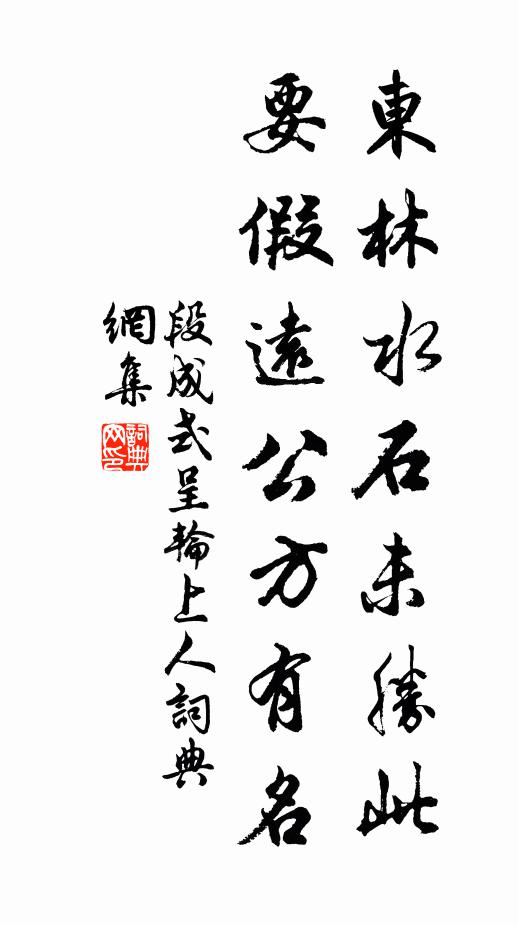 東林水石未勝此
要假遠公方有名
段成式呈輪上人詞典
網集
詞典網印